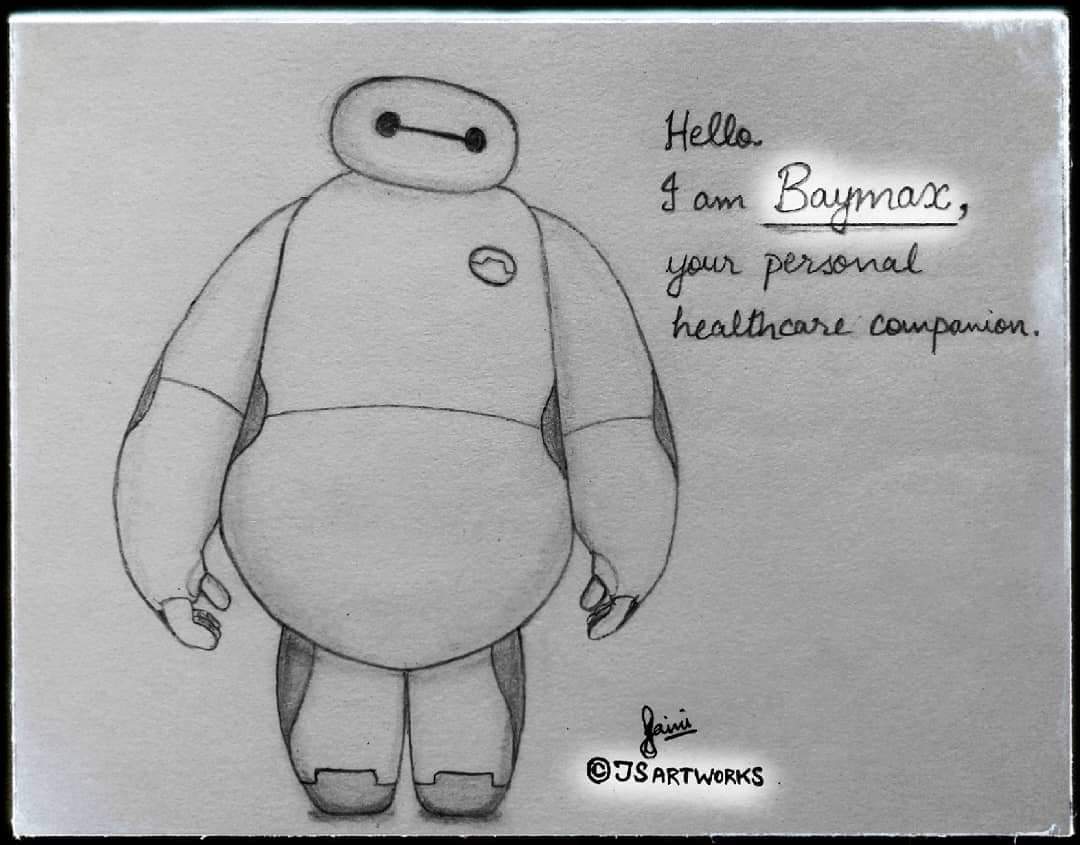 Hello.
I am Baymax,
your personal
healthcare companion.
Jaini
©JS ARTWORKS